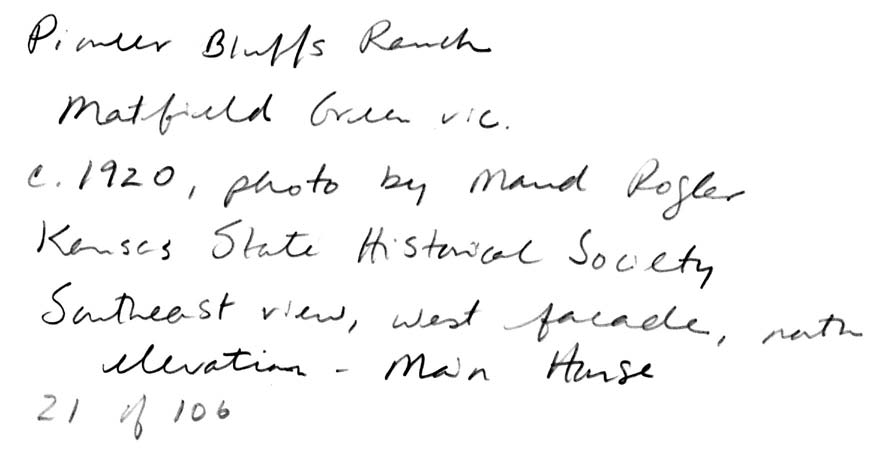 Pioneer Bluffs Ranch
Matfield Green vic.
c. 1920, photo by Maud Rogler
Kansas State Historical Society
Southeast view, west facade, north
elevation - Main House
21 of 106